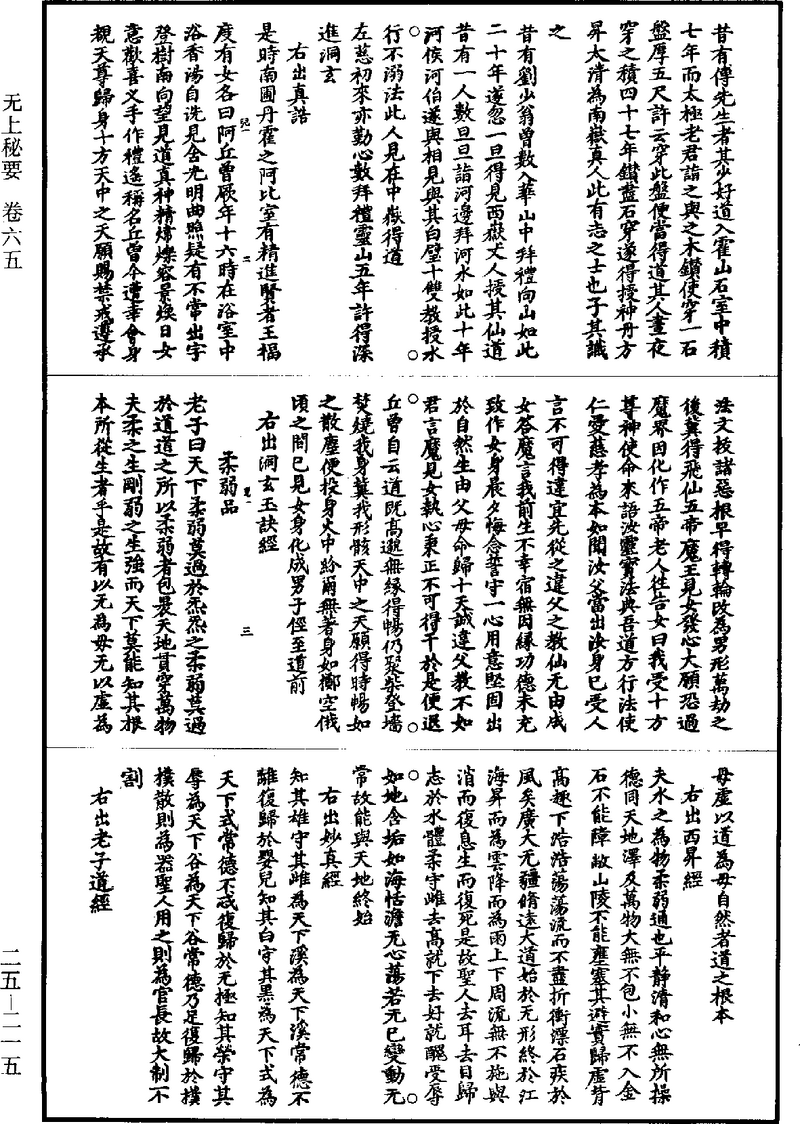 昔有傅先生者其少好道入霍山石室中積
七年而太極老君詣之與之木鑽使穿一石
盤厚五尺許云穿此盤便當得道其人晝夜
穿之積四十七年鑽盡石穿遂得授神丹方
昇太清為南嶽真人此有志之士也子其識
之
昔有劉少翁曾數入華山中拜禮向山如此
二十年遂忽一旦得見西嶽丈人授其仙道
昔有一人數旦旦詣河邊拜河水如此十年
河侯河伯遂與相見與其白璧十雙教授水
行不溺法此人見在中嶽得道
左慈初來亦勤心數拜禮靈山五年許得深
進洞玄
右出真誥
是時南圃丹霍之阿比室有精進賢者王福
度有女名曰阿丘曾厥年十六時在浴室中
浴香湯自洗見金光明曲照疑有不常出宇
登樹南向望見道真神精煒燦容景煥日女
意歡喜叉手作禮遙稱名丘曾今遭幸會身
覩天尊歸身十方天中之天願賜禁戒遵承
法文拔諸惡根早得轉輪改為男形萬劫之
後冀得飛仙五帝魔王見女發心大願恐過
魔界因化作五帝老人往告女曰我受十方
尊神使命來語汝靈寶法興吾道方行法使
仁愛慈孝為本如聞汝父當出汝身已受人
言不可得違宜先從之違父之教仙无由成
女荅魔言我前生不幸宿無因緣功德未充
致作女身晨夕悔念誓守一心用意堅固出
於自然生由父母命歸十天誠違父教不如
君言魔見女執心秉正不可得干於是便退
丘曾自云道既高邈無緣得暢仍聚柴登墻
焚燒我身冀我形骸天中之天願得時暢如
之散塵便投身火中紛爾無著身如擲空俄
頃之間已見女身化成男子徑至道前
右出洞玄玉訣經
柔弱品
老子曰天下柔弱莫過於炁炁之柔弱莫過
於道道之所以柔弱者包裹天地貫穿萬物
夫柔之生剛弱之生強而天下莫能知其根
本所從生者乎是故有以无為母无以虛為
母虛以道為母自然者道之根本
右出西昇經
夫水之為物柔弱通也平静清和心無所操
德同天地澤及萬物大無不包小無不入金
石不能障故山陵不能壅塞其避實歸虛背
高趣下浩浩蕩蕩流而不盡折衝漂石疾於
風矣廣大无疆脩遠大道始於无形終於江
海昇而為雲降而為雨上下周流無不施與
消而復息生而復死是故聖人去耳去目歸
志於水體柔守雌去高就下去好就醜受辱
如地含垢如海恬澹无心蕩若无已變動无
常故能與天地終始
右出妙真經
知其雄守其雌為天下溪為天下溪常德不
離復歸於嬰兒知其白守其黑為天下式為
天下式常德不忒復歸於无極知其榮守其
辱為天下谷為天下谷常德乃足復歸於撲
撲散則為器聖人用之則為官長故大制不
割
右出老子道經
无上秘要 卷六五
二五—二一五